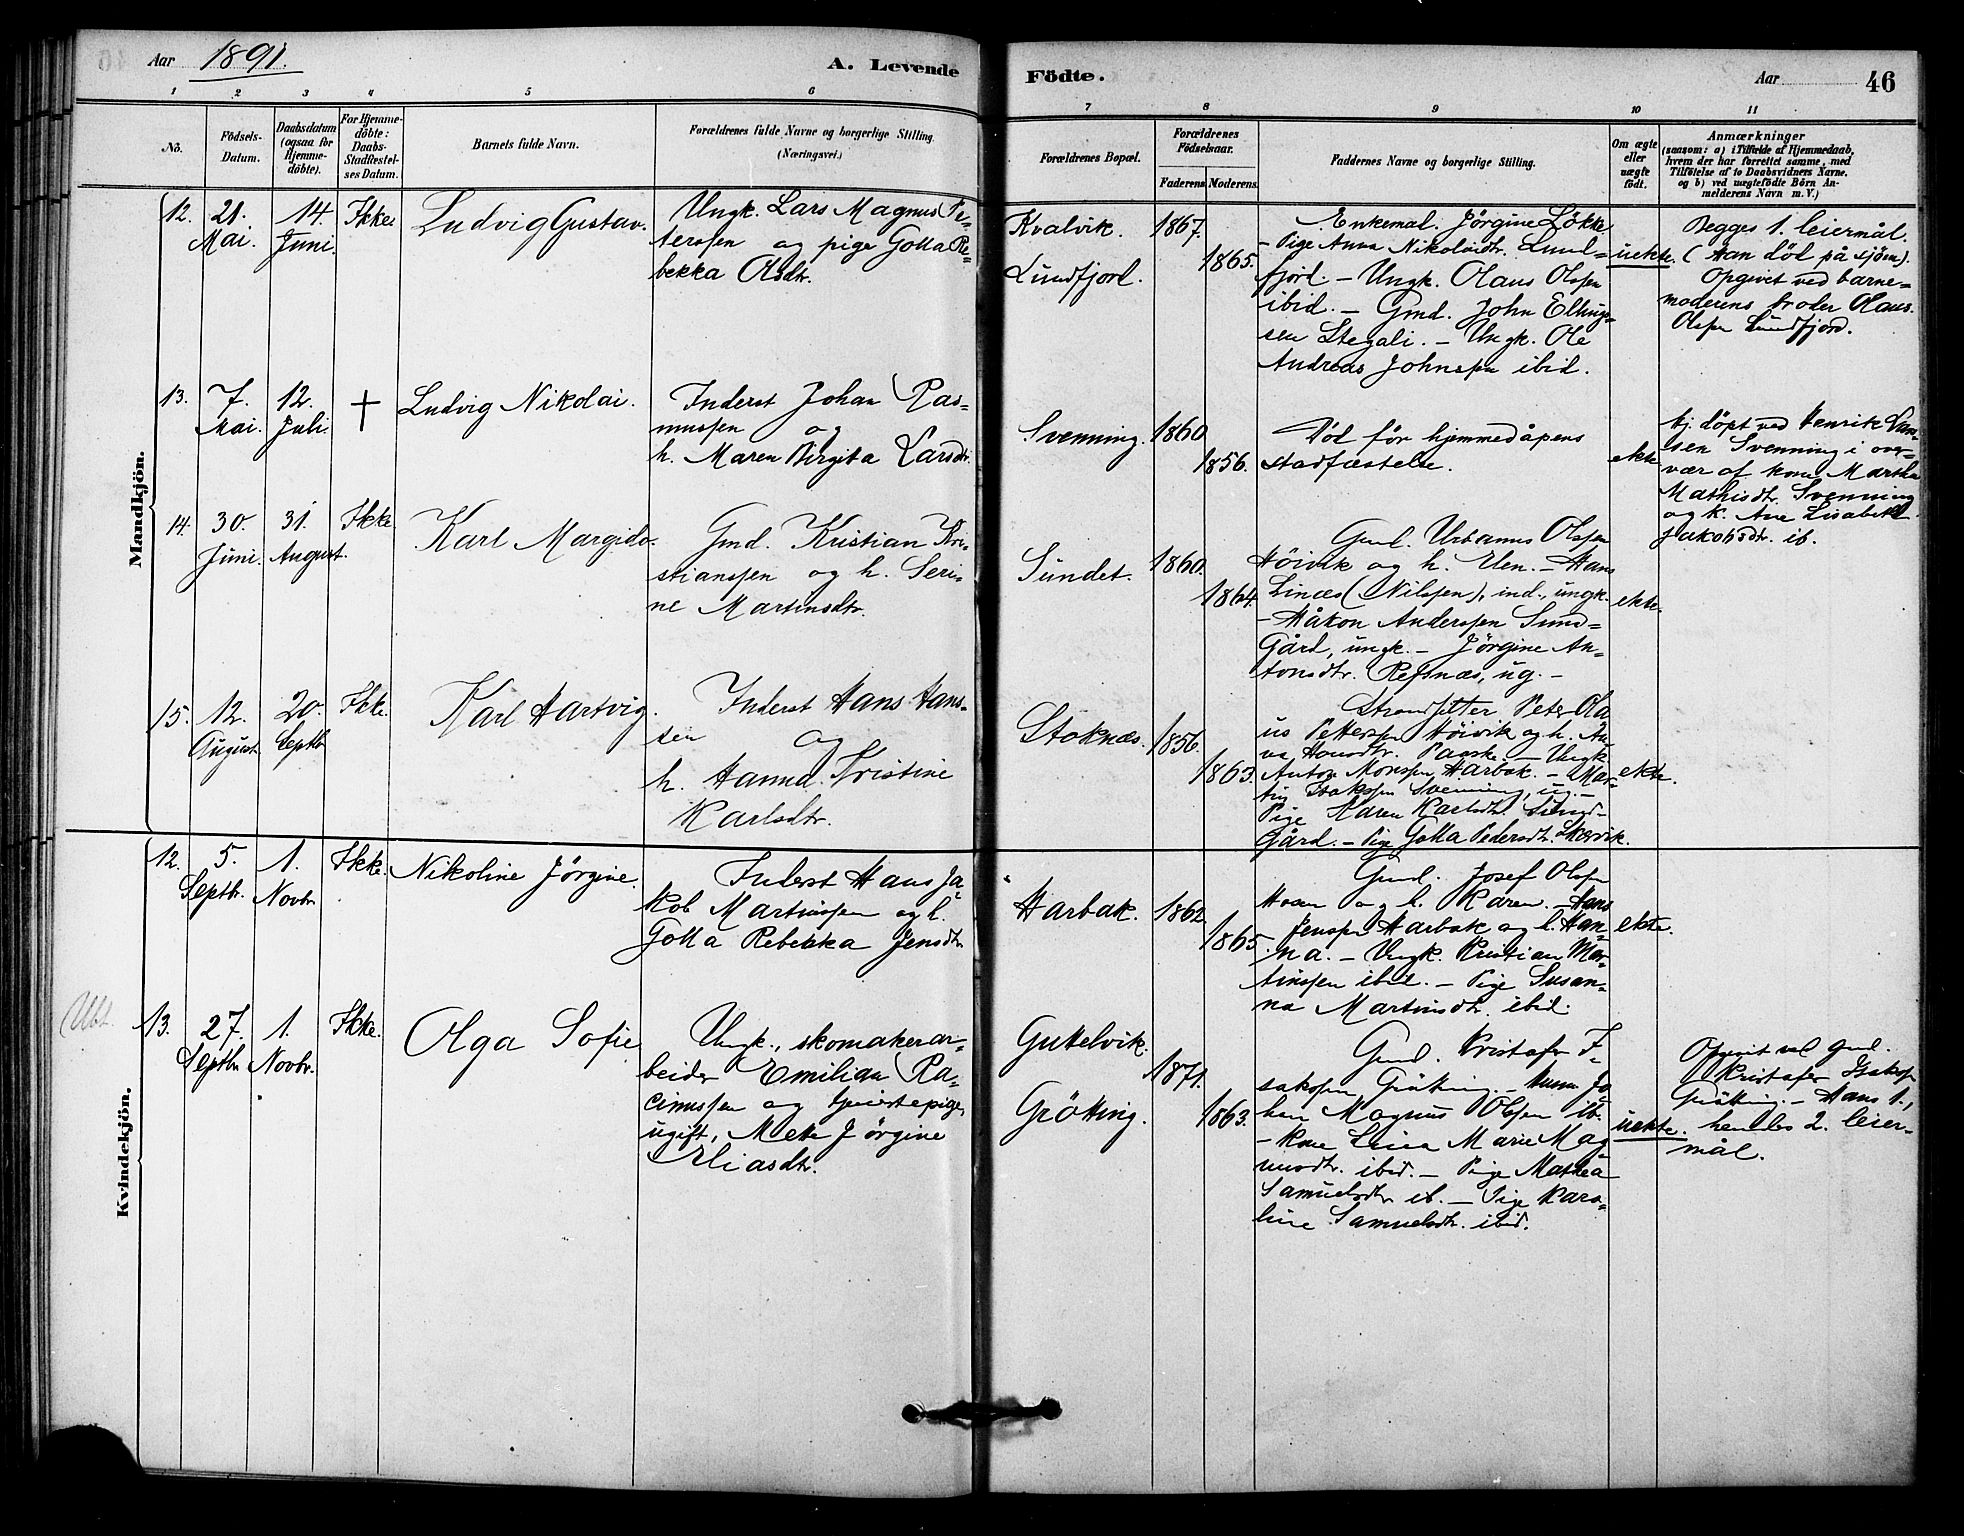 Aar 1891.
A. Levende
Födte.
Aar
46
1 2 3 4 5 6
7 8 9 10 11
No.
Födsels-
Datum.
Daabsdatum
(ogsaa for
Hjemme-
döbte).
For Hjemme-
döbte:
Daabs-
Stadfestel-
ses Datum.
Barnets fulde Navn.
Forældrenes fulde Navne og borgerlige Stilling.
(Næringsvei.)
Forældrenes Bopæl.
Forældrenes
Födselsaar.
Faderens. Moderens.
Faddernes Navne og borgerlige Stilling.
Om ægte
eller
uægte
födt.
Anmærkninger
(saasom: a) i Tilfælde af Hjemmedaab,
hvem der har forrettet samme, med
Tilföielse af to Daabsvidners Navne.
og b) ved uægtefödte Börn An-
melderens Navn m. V.)
Mandkjön.
12.
21.
Mai.
14.
Juni.
Ikke.
Ludvig Gustav.
Ungk. Lars Magnus Pe-
terssen og pige Golla Re-
bekka Olsdtr.
Kvalvik.
Lundfjord.
1867.
1865.
Enkemal. Jörgine Lökke
- Pige Anna Nikolaidtr. Lund-
fjord. - Ungk. Olaus Olssen
ibid. - Gmd. John Ellings-
sen Stegali. - Ungk. Ole
Andreas Johnssen ibid.
uekte.
Begges 1. leiermål.
(Han död på sjöen).
Opgivet ved barne-
moderens broder Olaus
Olssen Lundfjord.
13.
7.
Mai.
12.
Juli.
†
Ludvig Nikolai.
Inderst Johan Ras-
mussen og
h. Maren Birgita Larsdtr.
Svenning.
1860
1856.
Död för hjemmedåpens
stadfæstelse.
ekte
hj. döpt ved Henrik Lar-
sen Svenning i over-
vær af kone Martha
Mathisdtr. Svenning
og k. Ane Lisabeth
Jakobsdtr. ib.
14.
30.
Juni.
31.
August.
Ikke.
Karl Margido.
Gmd. Kristian Kri-
stianssen og h. Seri-
ne Martinsdtr.
Sundet.
1860.
1864.
Gmd. Urbanus Olssen
Höivik og h. Elen. - Hans
Linæs (Nilssen), ind., ungk.
- Håkon Anderssen Sund-
gård, ungk. - Jörgine An-
tonsdtr. Refsnæs, ug. -
ekte.
15.
12.
August.
20.
Septbr.
Ikke.
Karl Hartvig.
Inderst Hans Hans-
sen og
h. Hanna Kristine
Karlsdtr.
Stoknæs.
1856.
1863.
Strandsitter Peter Ola
us Petterssen Höivik og h. An-
na Hansdtr. Paaske - Ungk
Anton Monssen Harbak. - Mar-
tin Isakssen Svenning, ug. -
Pige Karen Karlsdtr. Sund-
gård. - Pige Golla Pedersdtr. Skjervik.
ekte.
Kvindekjön.
12.
5.
Septbr.
1.
Novbr.
Ikke.
Nikoline Jörgine.
Inderst Hans Ja-
kob Martinssen og h.
Golla Rebekka Jensdtr.
Harbak.
1862.
1865.
Gmd. Josef Olssen
Hosen og h. Karen. - Hans
Jenssen Harbak og h. Han-
na. - Ungk. Kristian Mar-
tinssen ibid. - Pige Susan-
na Martinsdtr. ibid.
ekte.
13.
27.
Septbr.
1.
Novbr.
Ikke.
Olga Sofie
Ungk., skomakerar-
beider Emilian Ra-
cinussen og tjenestepige,
ugift, Mette Jörgine
Eliasdtr.
Guttelvik.
Grötting.
1871.
1863.
Gmd. Kristofer I-
sakssen Grötting. - Jo
han Magnus Olssen ib.
- Kone Lina Marie Mag
nusdtr. ibid. - Pige Mathea
Samuelsdtr. ib. - Pige Karo-
line Samuelsdtr. ibid.
uekte.
Opgivet ved gmd.
Kristofer Isakssen
Grötting. - Hans 1.,
hendes 2. leier-
mål.